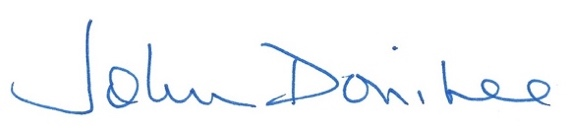 John Donihee